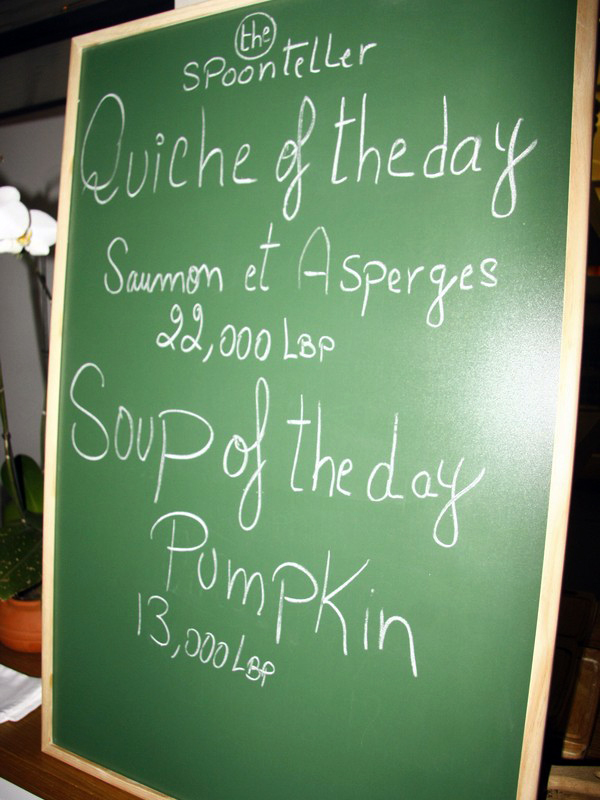 the
SPoonteller
Quiche of the day
Saumon et Asperges
22,000 LBP
Soup of the day
Pumpkin
13,000 LBP